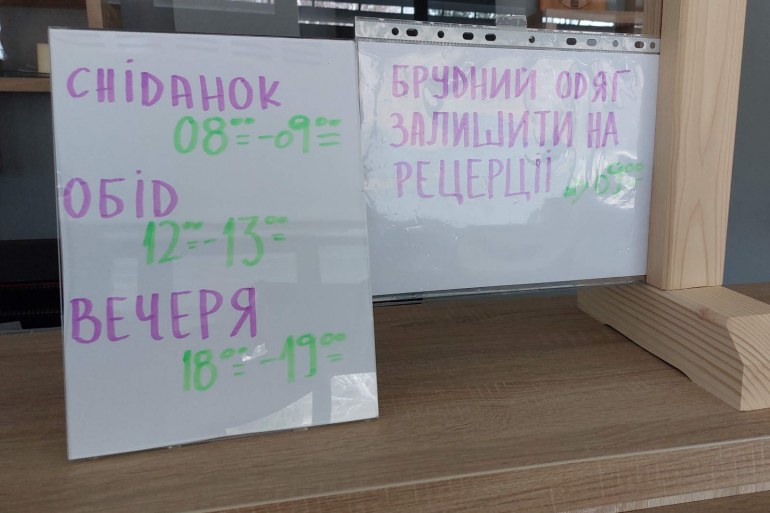 СНІДАНОК
08⁰⁰-09⁰⁰
ОБІД
12⁰⁰-13⁰⁰
ВЕЧЕРЯ
18⁰⁰-19⁰⁰
БРУДНИЙ ОДЯГ
ЗАЛИШИТИ НА
РЕЦЕРЦІЇ